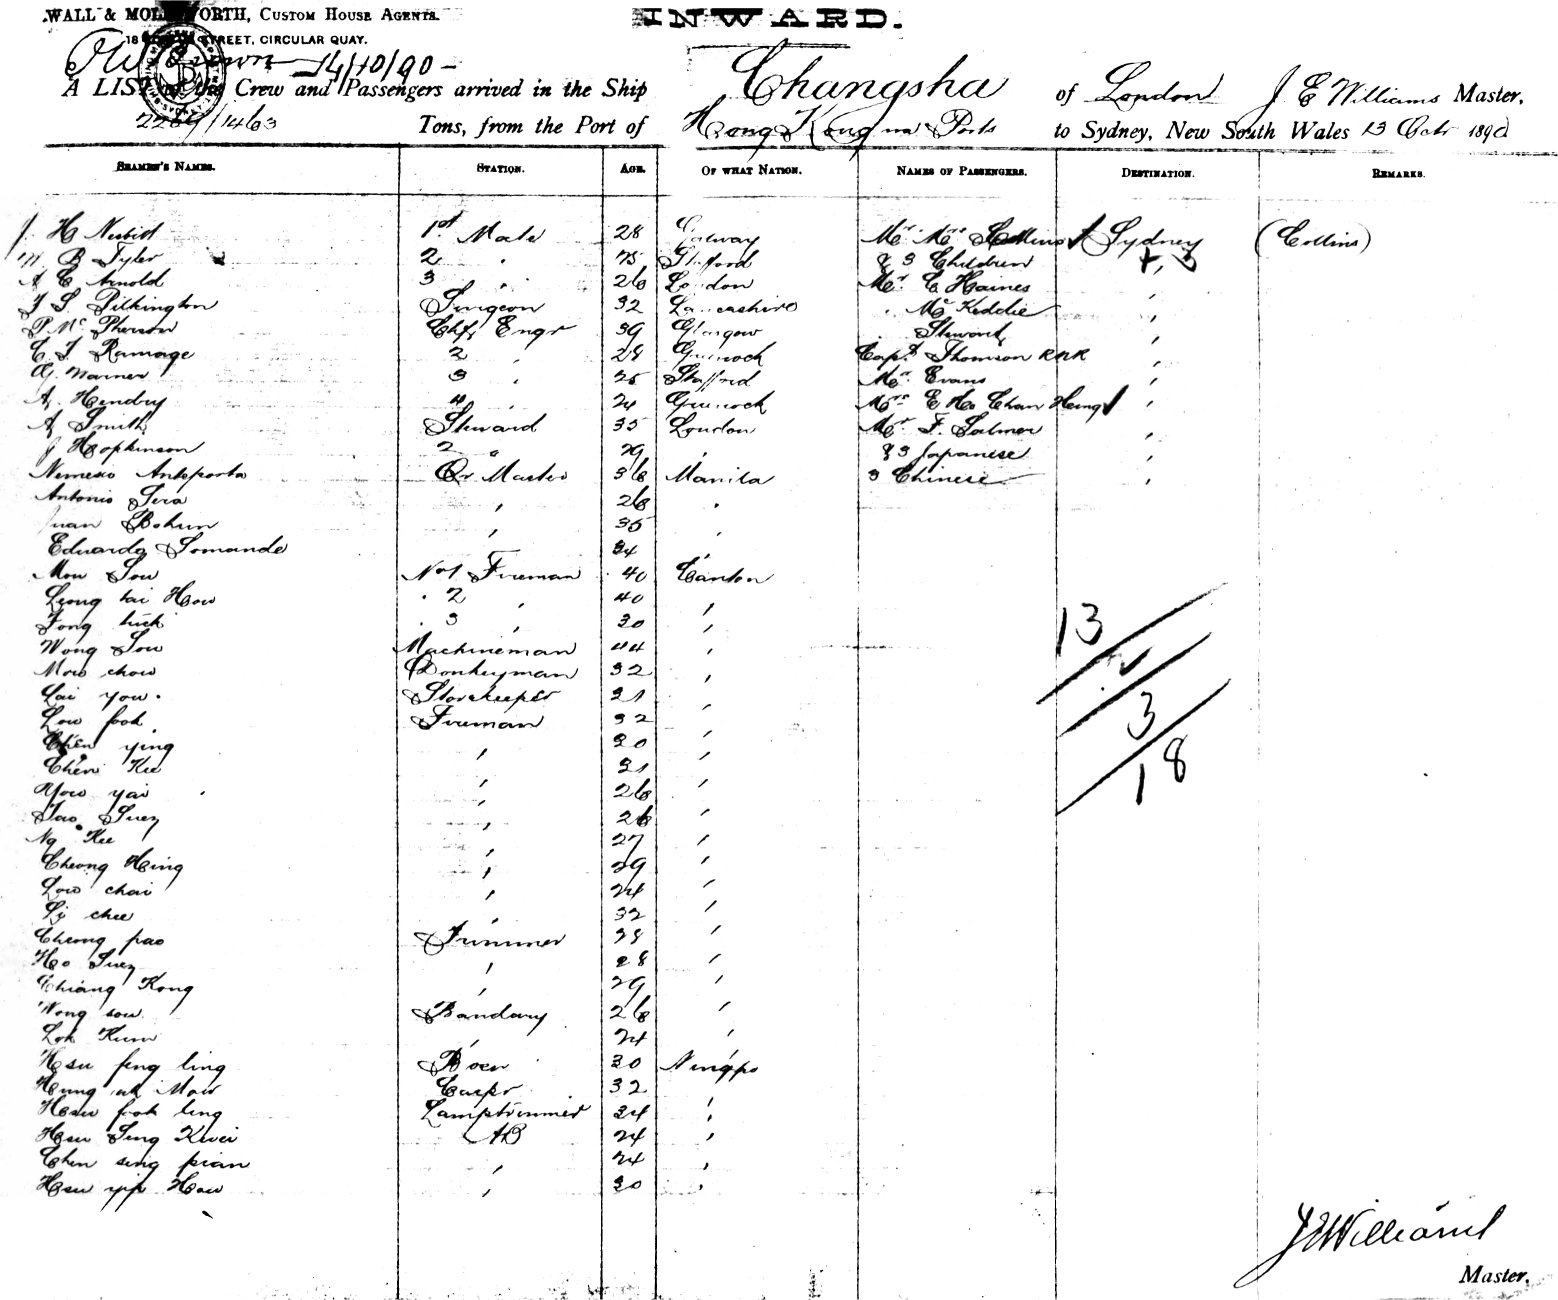 WALL & MOLESWORTH, CUSTOM HOUSE AGENTS.
INWARD.
STREET, CIRCULAR QUAY.
14/10/90
A LIST of the Crew and Passengers arrived in the Ship Changsha of London J E Williams Master,
1463 Tons, from the Port of Hong Kong via Ports to Sydney, New South Wales 13 Octr 1890
SEAMEN'S NAMES. STATION. AGE. OF WHAT NATION. NAMES OF PASSENGERS. DESTINATION. REMARKS.
H Nesbitt 1st Mate 28 Galway Mr Mrs Collins Sydney (Collins)
B Tyler 2 " Stafford & 3 Children "
A C Arnold 3 " 26 London Mr C Haines "
J S Pilkington Surgeon 32 Lancashire " McKeddie "
P McPherson Chf Engr 39 Glasgow " Stewart "
C J Ramage 2 " 28 Greenock Capt Thomson RNR "
Warner 3 " 25 Stafford Mr Evans "
A Hendry 4 " 24 Greenock Mrs E Ho Chan Heng "
A Smith Steward 35 London Mr F. Salmon "
J Hopkinson 2 " 29 " & 3 Japanese "
Nemesio Antoporta Qr Master 36 Manila 3 Chinese "
Antonio Sera " 26 "
Juan Bohun " 35 "
Eduardo Somande 34 "
Mow Sow No1 Fireman 40 Canton
Leong tai How " 2 " 40 "
Fong tuck " 3 " 30 "
Wong Sow Machineman 44 "
Mow chow Donkeyman 32 "
Lai you Storekeeper 31 "
Low fook Fireman 32 "
Chen ying " 30 "
Chen Kee " 31 "
Yow yai " 26 "
Sao Suey " 26 "
Ng Kee " 27 "
Cheong Hing " 29 "
Low chai " 24 "
Li chee " 32 "
Cheong pao Trimmer 28 "
Ho Suey " 28 "
Chiang Kong " 29 "
Wong sow Bandary 26 "
Lok Kum " 24 "
Hsu feng ling Bosn 30 Ningpo
Hung ah Mow Carpr 32 "
Hsu fook ling Lamptrimmer 34 "
Hsu Sing Kwei AB 24 "
Chen sing pian " 24 "
Hsu yip How " 30 "
13
2
3
18
J E Williams
Master.